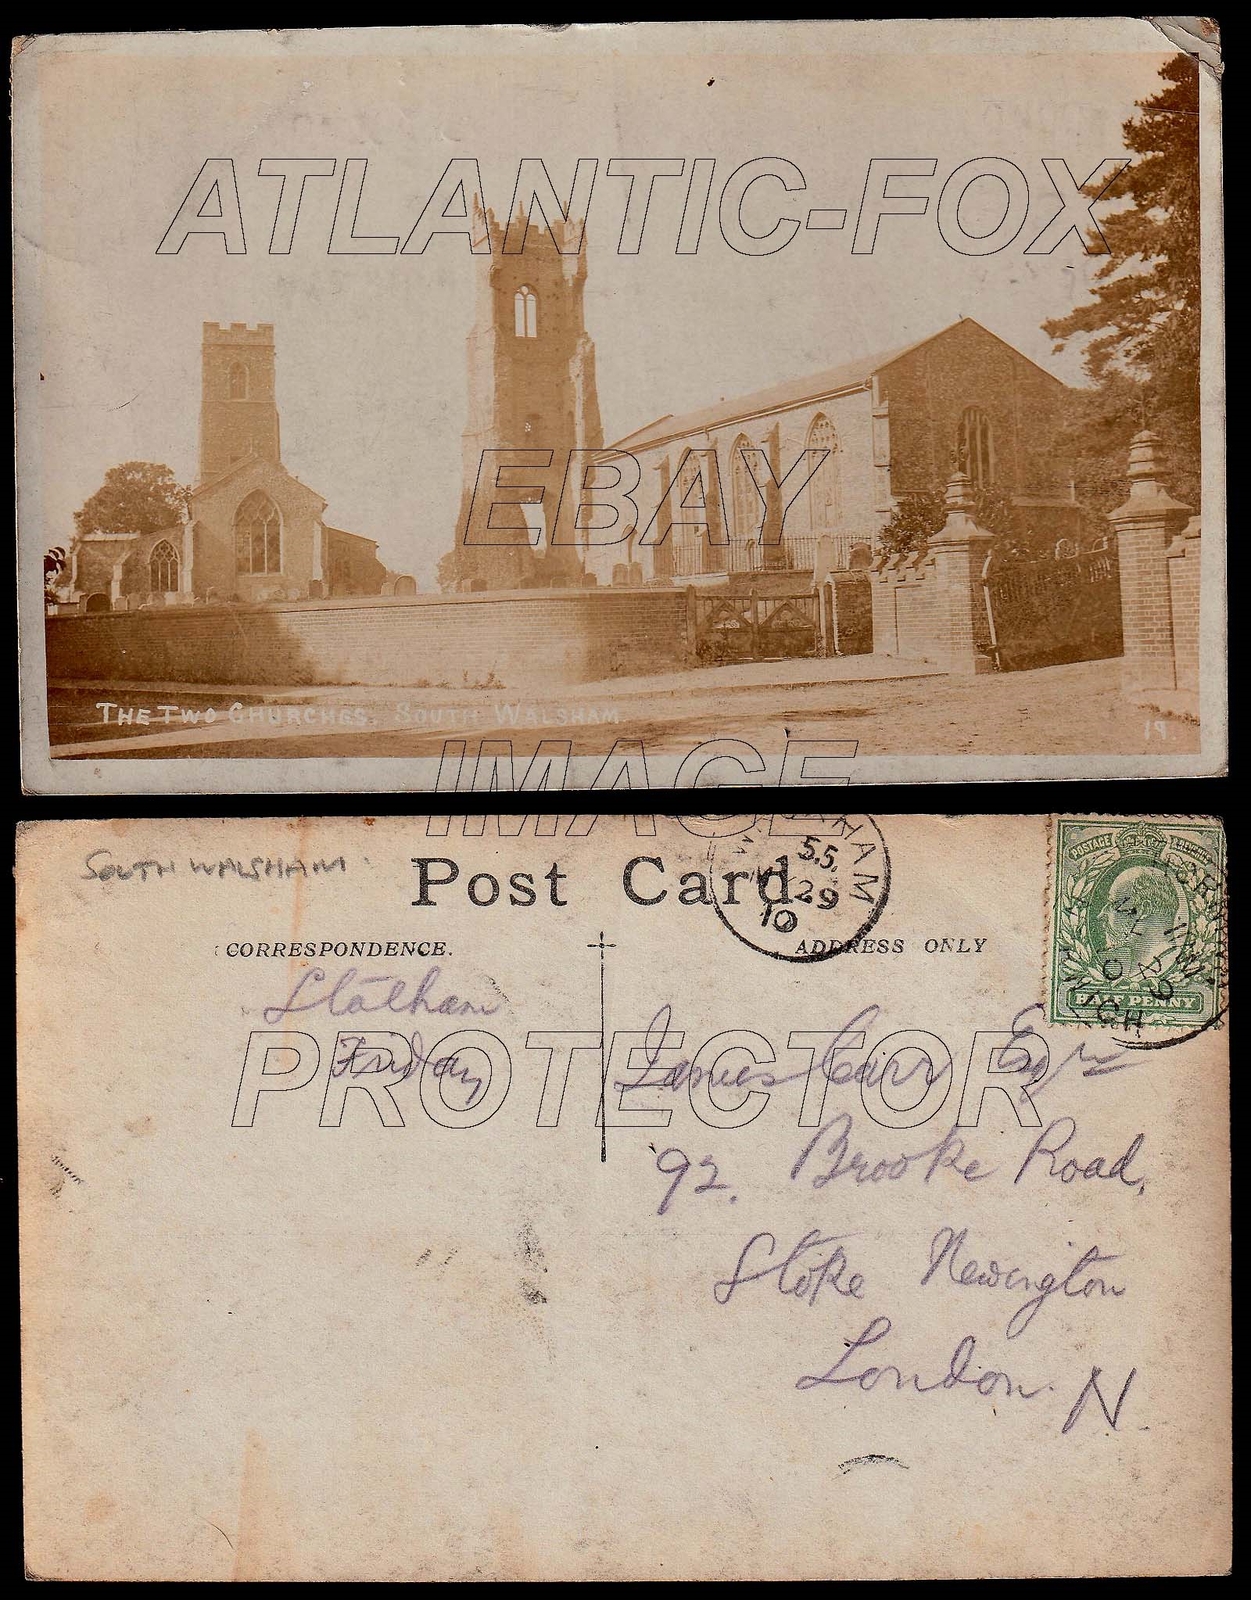 ATLANTIC-FOX
EBAY
IMAGE
PROTECTOR
THE TWO CHURCHES. SOUTH WALSHAM.
19.
SOUTH WALSHAM.
Post Card.
CORRESPONDENCE.
ADDRESS ONLY
HAM
5.5.
29
10
POSTAGE
HALF PENNY
Stalham
Friday
James Carr Esqre
92. Brooke Road,
Stoke Newington
London. N.